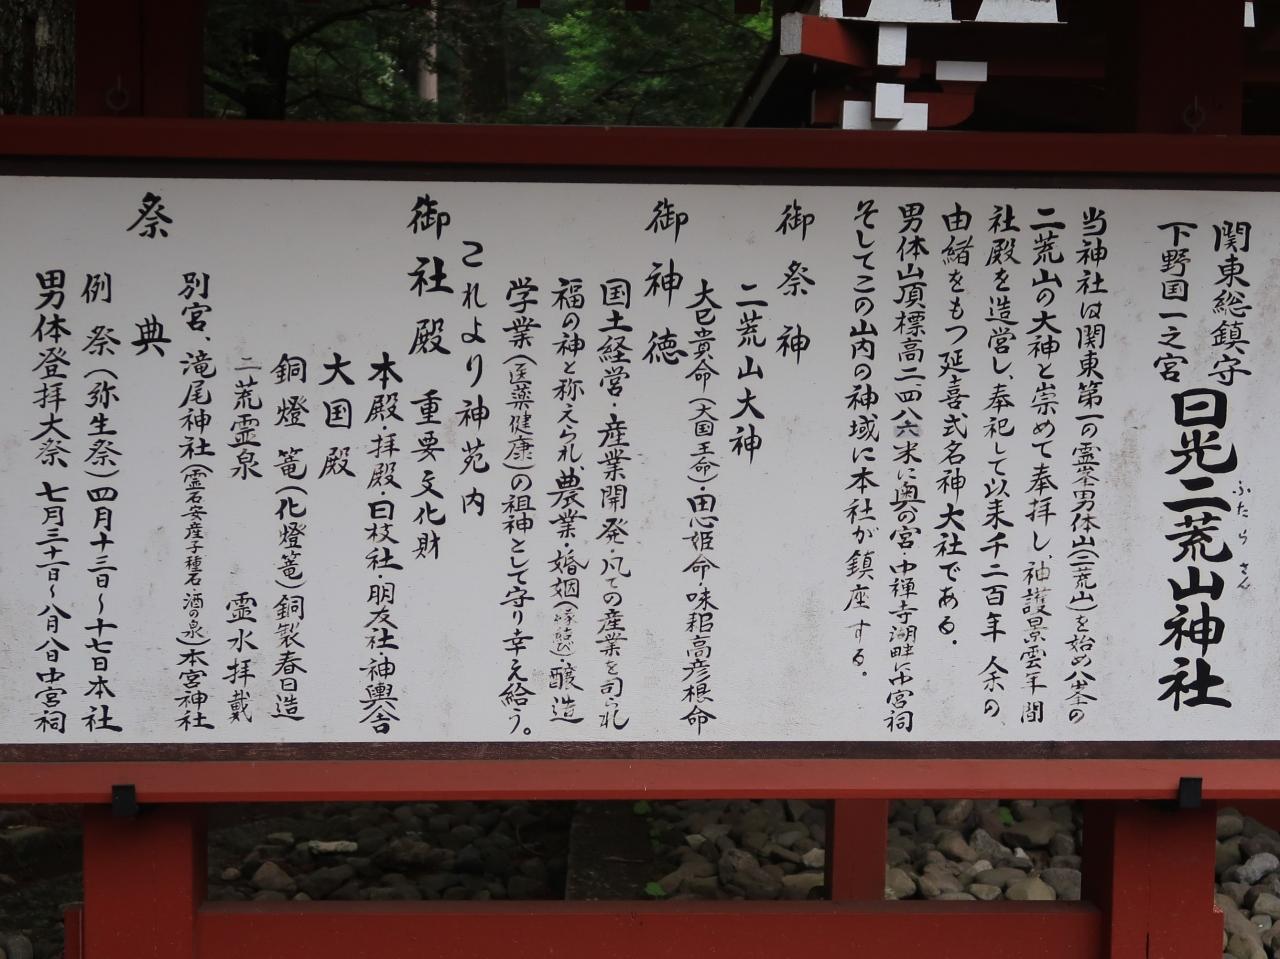 関東総鎮守
下野国一之宮
日光二荒山神社
ふたらさん
当神社は関東第一の霊峯男体山(二荒山)を始め八峯の
二荒山の大神と崇めて奉拝し、神護景雲年間
社殿を造営し、奉祀して以来千二百年余の
由緒をもつ延喜式名神大社である.
男体山頂標高二、四八六米に奥の宮・中禅寺湖畔に中宮祠
そしてこの山内の神域に本社が鎮座する.
御祭神
二荒山大神
大己貴命(大国主命)・田心姫命・味耜高彦根命
御神徳
国土経営・産業開発・凡ての産業を司られ
福の神と称えられ、農業・婚姻(縁結び)・醸造
学業(医薬健康)の祖神として守り幸え給う。
これより神苑内
御社殿 重要文化財
本殿・拝殿・日枝社・朋友社・神輿舎
大国殿
銅燈篭(化燈篭)銅製春日造
二荒霊泉 霊水拝戴
別宮、滝尾神社(霊石安産子種石・酒の泉)本宮神社
祭典
例祭(弥生祭)四月十三日~十七日本社
男体登拝大祭 七月三十一日~八月八日中宮祠